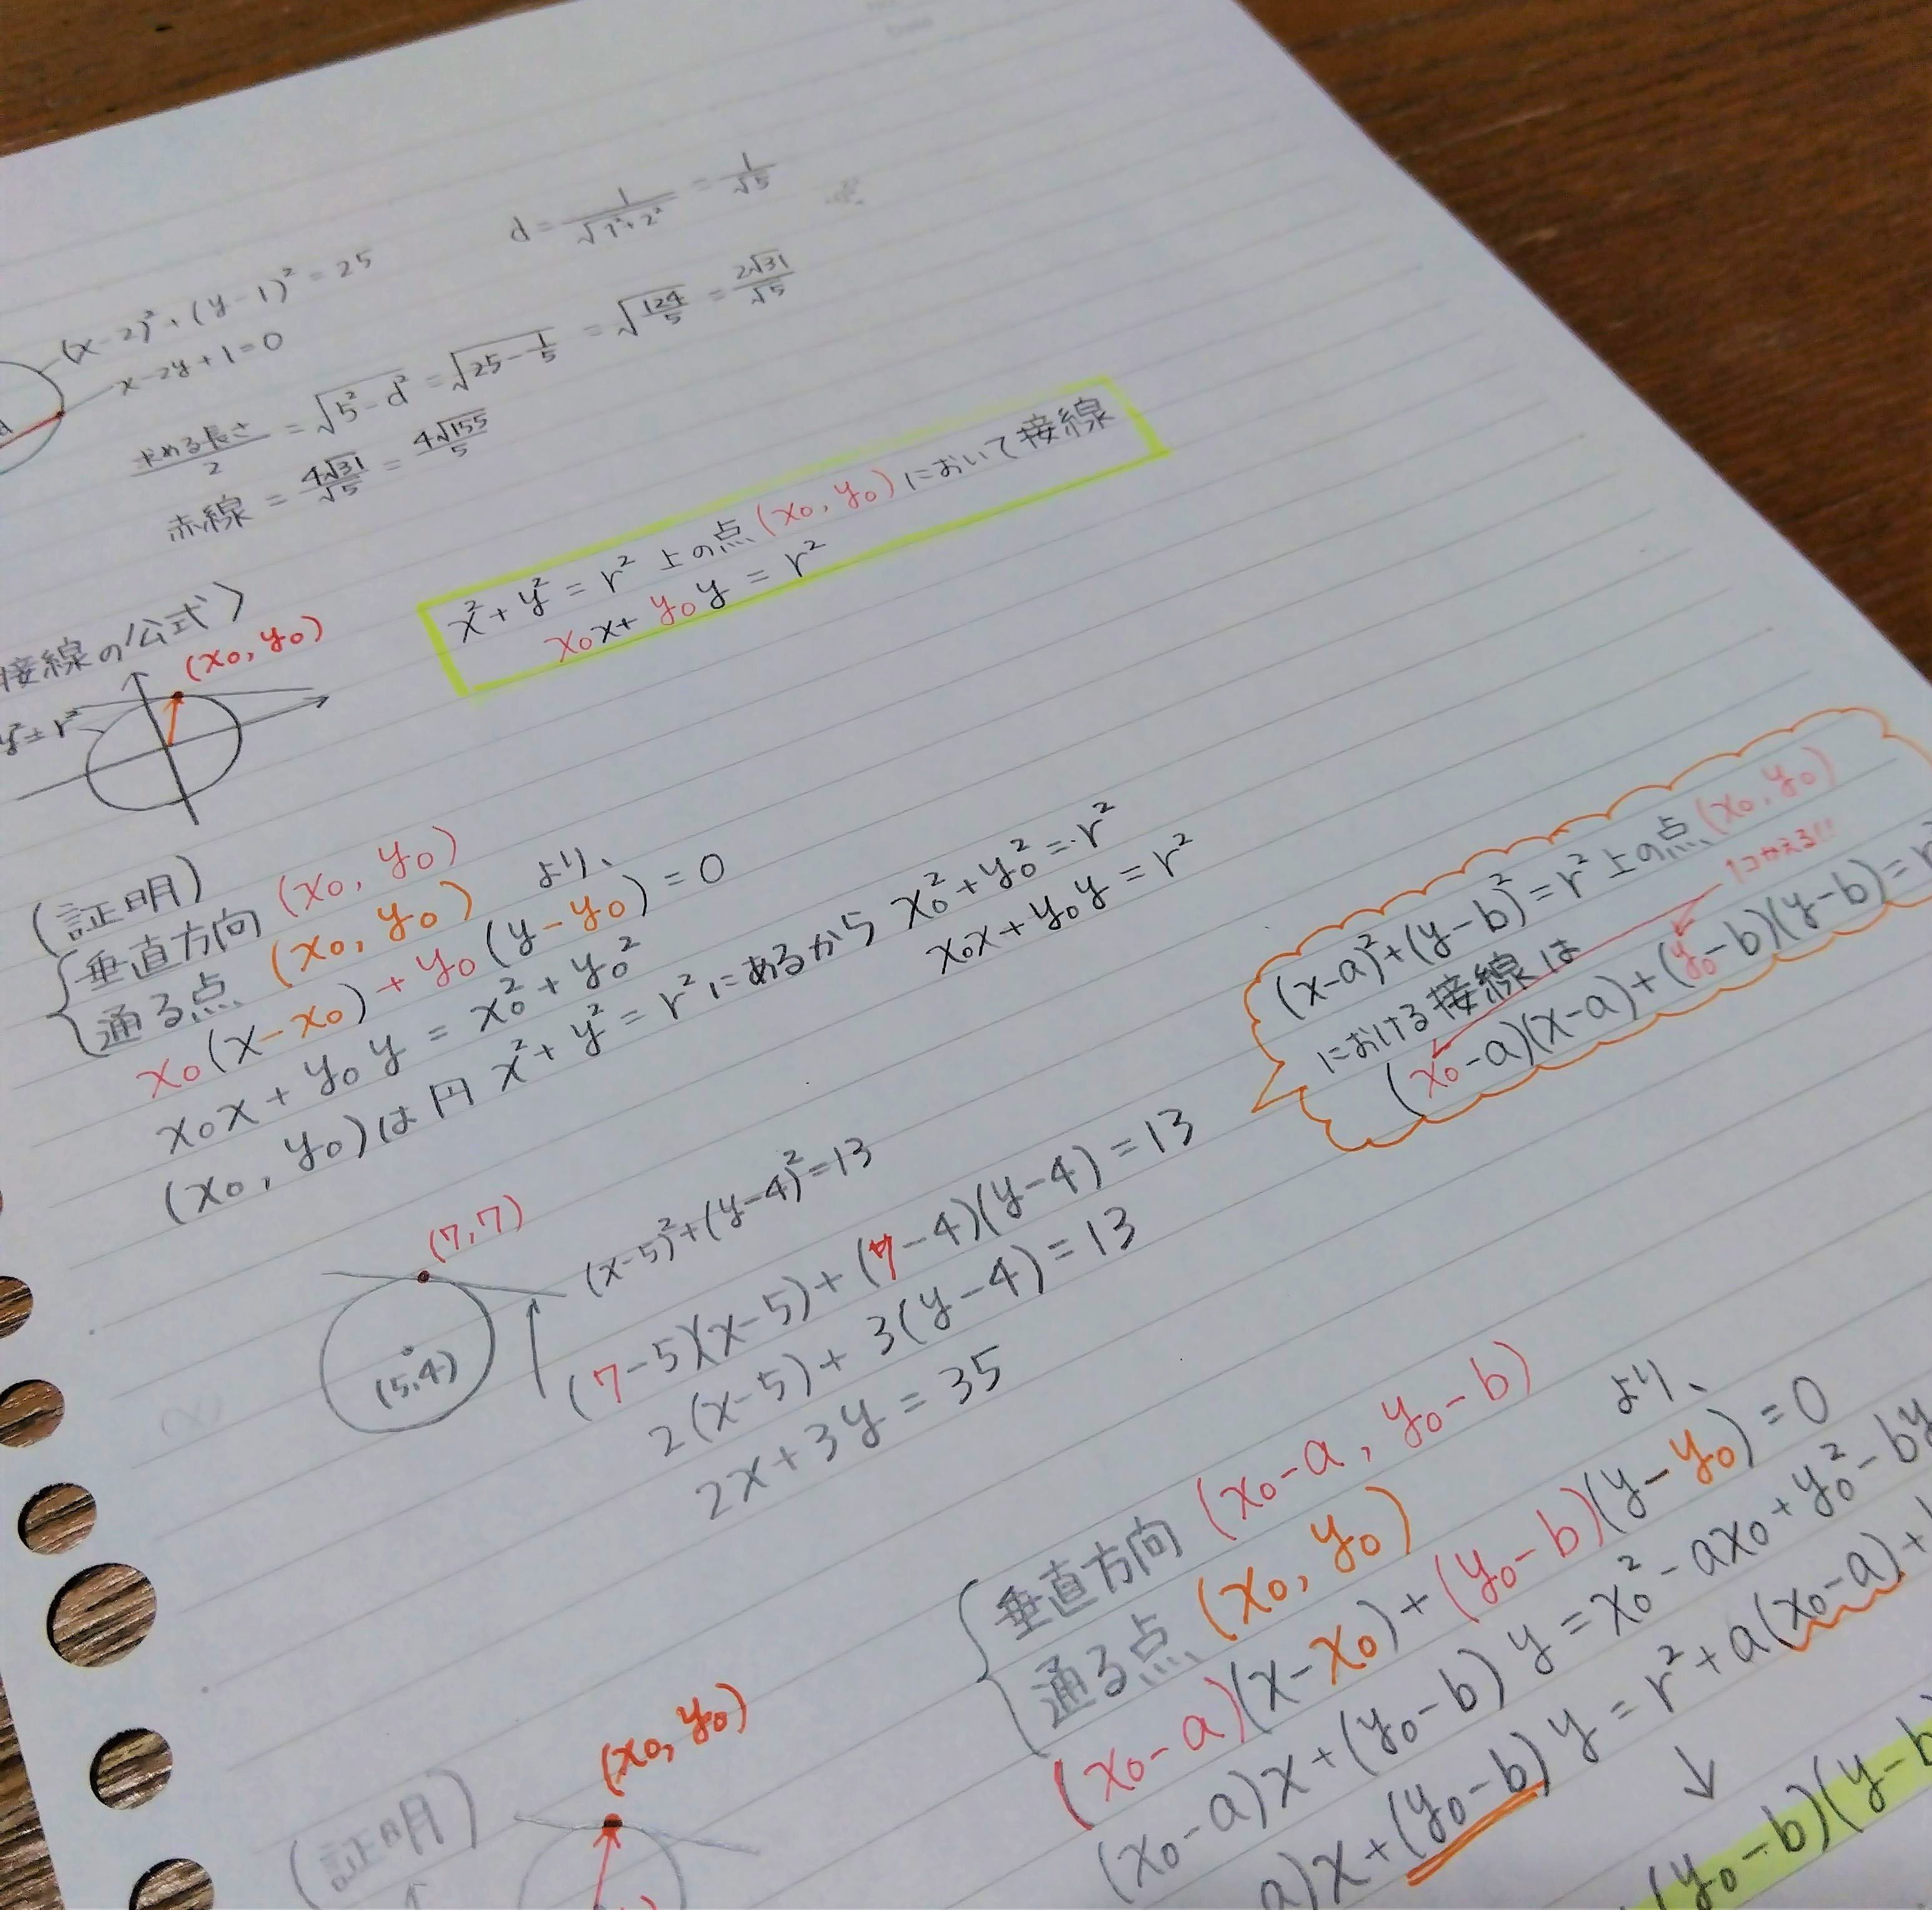 (x-2)²+(y-1)²=25
x-2y+1=0
d=1/√(1²+2²)=1/√5
求める長さ/2=√(5²-d²)=√(25-1/5)=√(124/5)=2√31/√5
赤線=4√31/√5=4√155/5
接線の公式〉
(x₀, y₀)
y²=r²
x²+y²=r²上の点(x₀, y₀)において接線
x₀x+y₀y=r²
(証明)
垂直方向(x₀, y₀)
通る点(x₀, y₀)より、
x₀(x-x₀)+y₀(y-y₀)=0
x₀x+y₀y=x₀²+y₀²
(x₀, y₀)は円x²+y²=r²にあるからx₀²+y₀²=r²
x₀x+y₀y=r²
(x-a)²+(y-b)²=r²上の点(x₀, y₀)
における接線は
1コかえる!!
(x₀-a)(x-a)+(y₀-b)(y-b)=r
(7,7)
(5,4)
(x-5)²+(y-4)²=13
(7-5)(x-5)+(7-4)(y-4)=13
2(x-5)+3(y-4)=13
2x+3y=35
(証明)
(x₀, y₀)
垂直方向(x₀-a, y₀-b)
通る点(x₀, y₀)より、
(x₀-a)(x-x₀)+(y₀-b)(y-y₀)=0
(x₀-a)x+(y₀-b)y=x₀²-ax₀+y₀²-by
a)x+(y₀-b)y=r²+a(x₀-a)+
↓
(y₀-b)(y-b